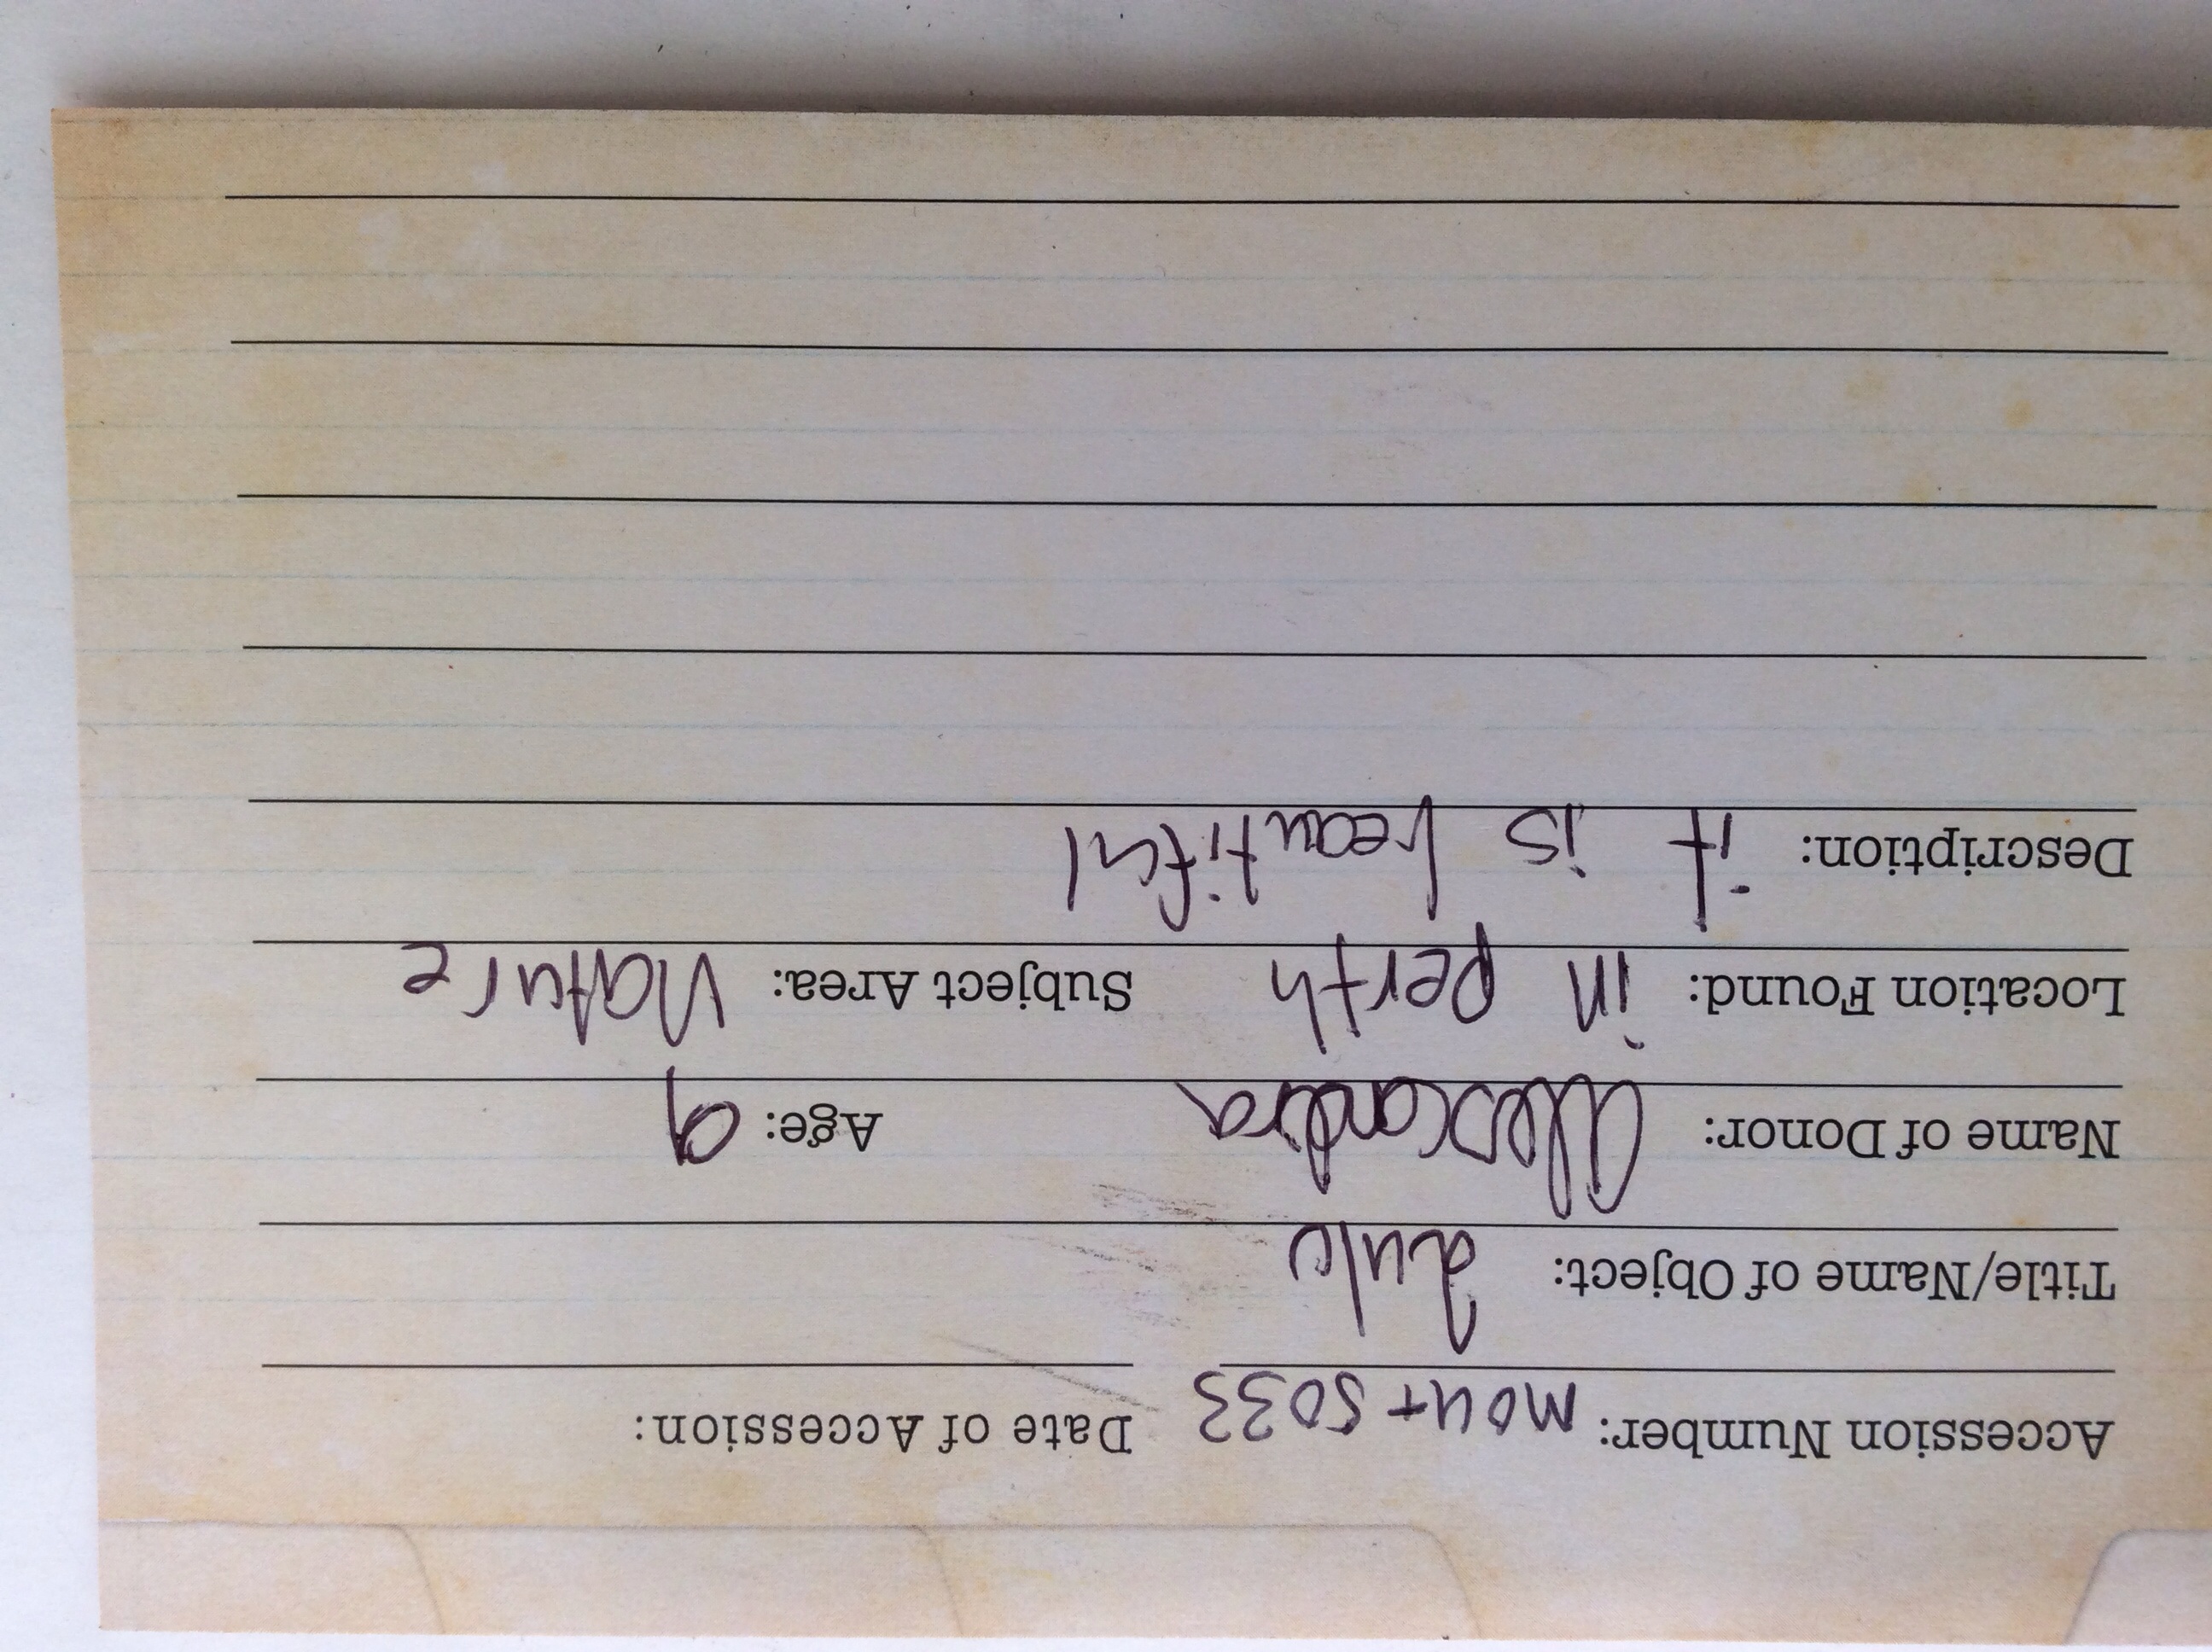 Accession Number: MOU+5033 Date of Accession:
Title/Name of Object:
Name of Donor: Alexandra Age: 9
Location Found: in perth Subject Area: Nature
Description: it is beautiful